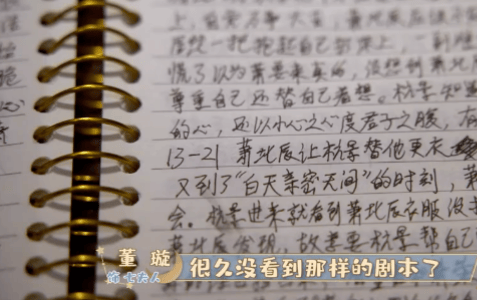 一把抱起自己到床上,一副
慌了以为萧要来真的,没想到萧北辰
尊重自己还替自己着想。杭景知
的心,还以小人之心度君子之腹,有
13-21 萧北辰让杭景替他更衣
又到了“白天亲密无间”的时刻,萧
会。杭景进来就看到萧北辰衣服没
萧北辰发现,故意要杭景帮自己
董璇
很久没看到那样的剧本了